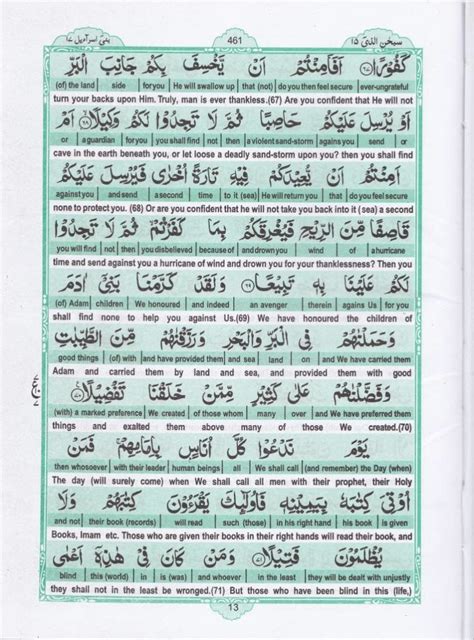 سبحن الذی ١٥ 461 بنی اسرآءیل ١٧
كَفُوْرًا ٦٧ اَفَاَمِنْتُمْ اَنْ يَّخْسِفَ بِكُمْ جَانِبَ الْبَرِّ
(of) the land | side | foryou | He will swallow up | that (not) | do you then feel secure | ever-ungrateful
turn your backs upon Him. Truly, man is ever thankless.(67) Are you confident that He will not
اَوْ يُرْسِلَ عَلَيْكُمْ حَاصِبًا ثُمَّ لَا تَجِدُوْا لَكُمْ وَكِيْلًا ٦٨ اَمْ
or | a guardian | for you | you shall find | not | then | a violent sand-storm | against you | send | or
cave in the earth beneath you, or let loose a deadly sand-storm upon you? then you shall find
اَمِنْتُمْ اَنْ يُّعِيْدَكُمْ فِيْهِ تَارَةً اُخْرٰى فَيُرْسِلَ عَلَيْكُمْ
against you | and send | a second | time | to it (sea) | He will return you | that | do you feel secure
none to protect you. (68) Or are you confident that he will not take you back into it (sea) a second
قَاصِفًا مِّنَ الرِّيْحِ فَيُغْرِقَكُمْ بِمَا كَفَرْتُمْ ثُمَّ لَا تَجِدُوْا
you will find | not | then | you disbelieved | because of | and drown you | wind | of | a hurricane
time and send against you a hurricane of wind and drown you for your thanklessness? Then you
لَكُمْ عَلَيْنَا بِهٖ تَبِيْعًا ٦٩ وَلَقَدْ كَرَّمْنَا بَنِىْٓ اٰدَمَ
(of) Adam | children | We honoured | and indeed | an avenger | therein | agains Us | for you
shall find none to help you against Us.(69) We have honoured the children of
وَحَمَلْنٰهُمْ فِى الْبَرِّ وَالْبَحْرِ وَرَزَقْنٰهُمْ مِّنَ الطَّيِّبٰتِ
good things | (of) with | and have provided them | and sea | land | on | and We have carried them
Adam and carried them by land and sea, and provided them with good
وَفَضَّلْنٰهُمْ عَلٰى كَثِيْرٍ مِّمَّنْ خَلَقْنَا تَفْضِيْلًا ٧٠
(with) a marked preference | We created | of those whom | many | over | and We have preferred them
things and exalted them above many of those We created.(70)
يَوْمَ نَدْعُوْا كُلَّ اُنَاسٍۢ بِاِمَامِهِمْ فَمَنْ
then whosoever | with their leader | human beings | all | We shall call | (and remember) the Day (when)
The day (will surely come) when We shall call all men with their prophet, their Holy
اُوْتِىَ كِتٰبَهٗ بِيَمِيْنِهٖ فَاُولٰٓئِكَ يَقْرَءُوْنَ كِتٰبَهُمْ وَلَا
and not | their book (records) | will read | such (those) | in his right hand | his book | is given
Books, Imam etc. Those who are given their books in their right hands will read their book, and
يُظْلَمُوْنَ فَتِيْلًا ٧١ وَمَنْ كَانَ فِىْ هٰذِهٖٓ اَعْمٰى
blind | this (world) | in | is (was) | and whoever | in the least | they will be dealt with unjustly
they shall not in the least be wronged.(71) But those who have been blind in this (life,)
13